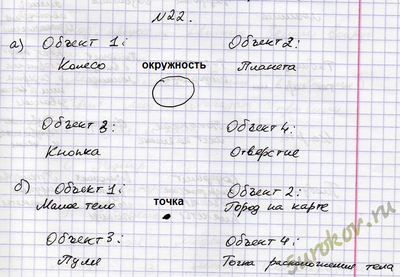 №22.
а) Объект 1: Объект 2:
Колесо окружность Планета
Объект 3: Объект 4:
Кнопка Отверстие
б) Объект 1: Объект 2:
Малое тело точка Город на карте
Объект 3: Объект 4:
Пуля Точка расположения тела
surokov.ru